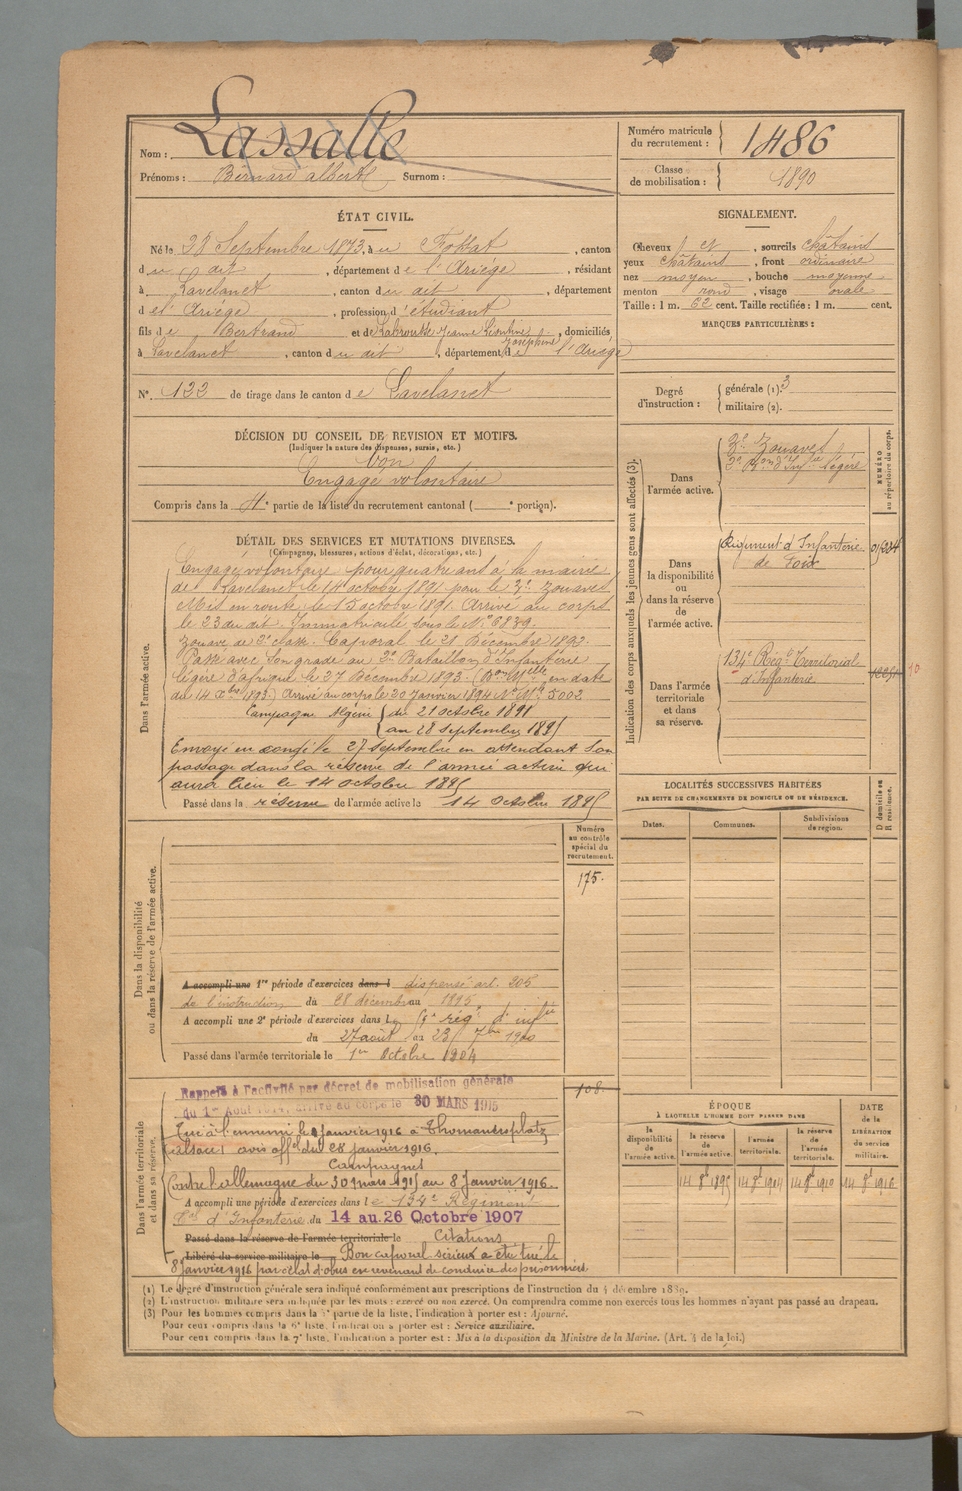 Nom : Lassalle
Prénoms : Bernard albert Surnom :
Numéro matricule du recrutement : 1486
Classe de mobilisation : 1890
ÉTAT CIVIL.
Né le 28 Septembre 1873, à u Fossat, canton
d u dit, département d e l'Ariège, résidant
à Lavelanet, canton d u dit, département
d e l'Ariège, profession d'étudiant
fils d e Bertrand et de Labroutte Jeanne Léontine Joséphine, domiciliés
à Lavelanet, canton d u dit, département d e l'Ariège
N° 122 de tirage dans le canton d e Lavelanet
SIGNALEMENT.
Cheveux et, sourcils châtains
yeux châtains, front ordinaire
nez moyen, bouche moyenne
menton rond, visage ovale
Taille : 1 m. 62 cent. Taille rectifiée : 1 m. cent.
MARQUES PARTICULIÈRES :
Degré d'instruction : générale (1). 3
militaire (2).
DÉCISION DU CONSEIL DE REVISION ET MOTIFS.
(Indiquer la nature des dispenses, sursis, etc.)
bon
Engagé volontaire
Compris dans la 4e partie de la liste du recrutement cantonal ( e portion).
DÉTAIL DES SERVICES ET MUTATIONS DIVERSES.
(Campagnes, blessures, actions d'éclat, décorations, etc.)
Dans l'armée active.
Engagé volontaire pour quatre ans à la mairie
de Lavelanet le 14 octobre 1891 pour le 3e Zouaves
Mis en route le 15 octobre 1891. Arrivé au corps
le 23 du dit. Immatriculé sous le N° 6839.
Zouave de 2e classe. Caporal le 21 Décembre 1892.
Passé avec son grade au 2e Bataillon d'Infanterie
légère d'afrique le 27 Décembre 1893. (Don Melle en date
du 14 Xbre 1893.) Arrivé au corps le 20 janvier 1894 No Mle 5002
Campagne Algérie du 21 octobre 1891
au 28 septembre 1895
Envoyé en congé le 27 septembre en attendant son
passage dans la réserve de l'armée active qui
aura lieu le 14 octobre 1895
Passé dans la réserve de l'armée active le 14 octobre 1895
Indication des corps auxquels les jeunes gens sont affectés (3).
NUMÉRO au répertoire du corps.
Dans l'armée active.
3e Zouaves
2e Bon d'Infie légère
Dans la disponibilité ou dans la réserve de l'armée active.
Régiment d'Infanterie
de Foix
Dans l'armée territoriale et dans sa réserve.
134e Régt Territorial
d'Infanterie
LOCALITÉS SUCCESSIVES HABITÉES
PAR SUITE DE CHANGEMENTS DE DOMICILE OU DE RÉSIDENCE.
Dates.
Communes.
Subdivisions de région.
D domicile ou R résidence.
Numéro au contrôle spécial du recrutement.
175.
Dans la disponibilité ou dans la réserve de l'armée active.
A accompli une 1re période d'exercices dans l dispensé art. 205
de l'instruction du 28 décembre 1895
A accompli une 2e période d'exercices dans l régt d'infie
du 27 août au 23 7bre 1900
Passé dans l'armée territoriale le 1er Octobre 1904
108.
Dans l'armée territoriale et dans sa réserve.
Rappelé à l'activité par décret de mobilisation générale
du 1er Août 1914, arrivé au corps le 30 MARS 1915
Tué à l'ennemi le 8 janvier 1916 à Thomannsplatz
(alsace) avis offel du 28 janvier 1916.
Campagnes
Contre l'allemagne du 30 mars 1915 au 8 janvier 1916.
A accompli une période d'exercices dans l e 134e Régiment
Tal d'Infanterie du 14 au 26 Octobre 1907
Passé dans la réserve de l'armée territoriale le Citations
Libéré du service militaire le Bon caporal sérieux a été tué le
8 janvier 1916 par éclat d'obus en revenant de conduire des prisonniers
ÉPOQUE
À LAQUELLE L'HOMME DOIT PASSER DANS
la disponibilité de l'armée active.
la réserve de l'armée active.
l'armée territoriale.
la réserve de l'armée territoriale.
DATE de la LIBÉRATION du service militaire.
14 8bre 1895
14 8bre 1904
14 8bre 1910
14 8bre 1916
(1) Le degré d'instruction générale sera indiqué conformément aux prescriptions de l'instruction du 4 décembre 1889.
(2) L'instruction militaire sera indiquée par les mots : exercé ou non exercé. On comprendra comme non exercés tous les hommes n'ayant pas passé au drapeau.
(3) Pour les hommes compris dans la 5e partie de la liste, l'indication à porter est : Ajourné.
Pour ceux compris dans la 6e liste, l'indication à porter est : Service auxiliaire.
Pour ceux compris dans la 7e liste, l'indication à porter est : Mis à la disposition du Ministre de la Marine. (Art. 4 de la loi.)